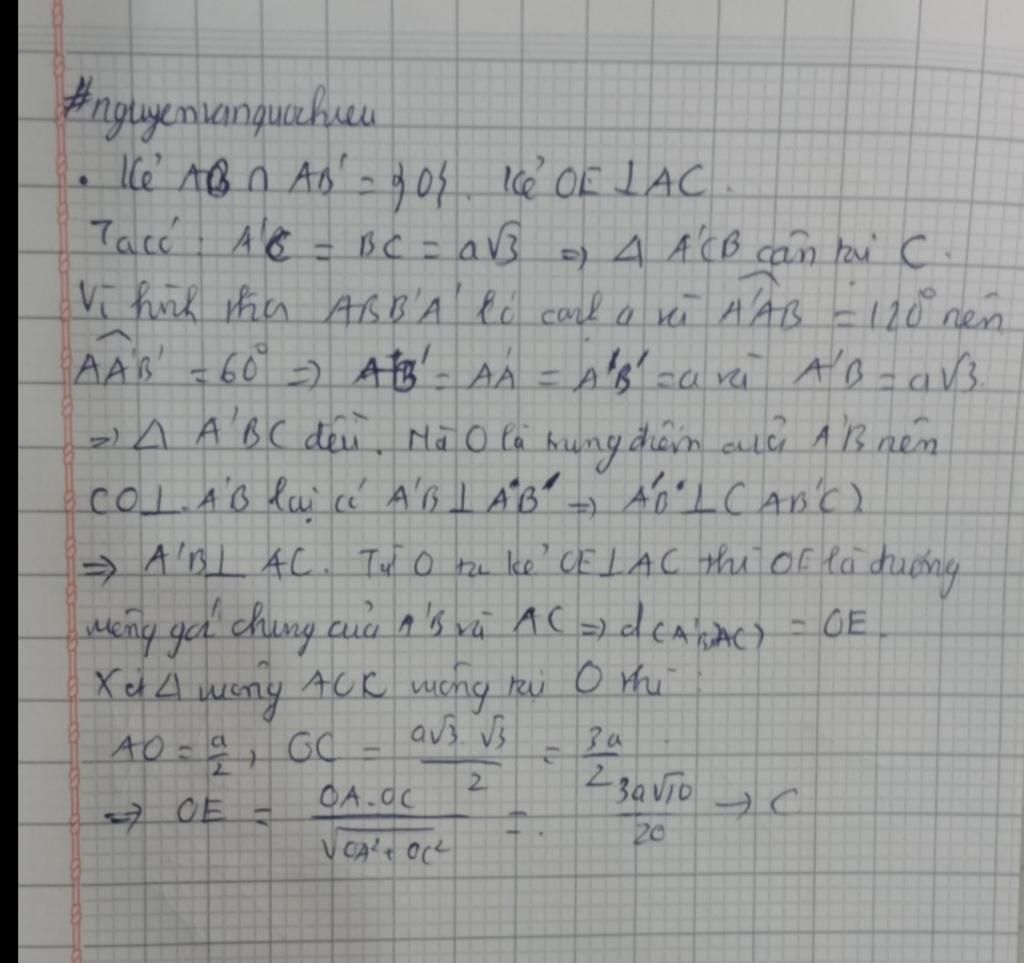 #nguyenvanquachieu
. Kẻ AB ∩ AB' = {O}. Kẻ OE ⊥ AC.
Ta có: A'C = BC = a√3 => Δ A'CB cân tại C.
Vì hình thoi ABB'A' có cạnh a và A'AB = 120° nên
AA'B' = 60° => AB' = AA' = A'B' = a và A'B = a√3
=> Δ A'BC đều. Mà O là trung điểm của A'B nên
CO ⊥ A'B lại có A'B ⊥ AB' => A'B ⊥ (AB'C)
=> A'B ⊥ AC. Từ O ta kẻ OE ⊥ AC thì OE là đường
vuông góc chung của A'B và AC => d(A'B,AC) = OE.
Xét Δ vuông ACK vuông tại O thì :
AO = a/2, OC = a√3.√3/2 = 3a/2
=> OE = OA.OC/√OA²+OC² = . 3a√10/20 → C